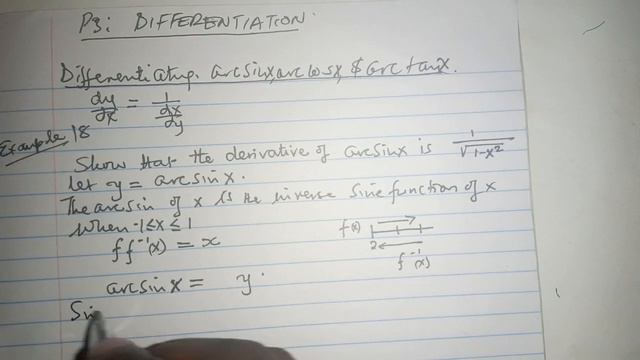 P3: DIFFERENTIATION.
Differentiating. arcsinx, arc cosx, & arc tanx.
dy/dx = 1/(dx/dy)
Example 18
Show that the derivative of arcsinx is 1/√(1-x²)
let y = arcsinx.
The arcsin of x is the inverse sine function of x
when -1≤x≤1
f f⁻¹(x) = x
f(x)
2
f⁻¹(x)
arcsinx = y.
Si